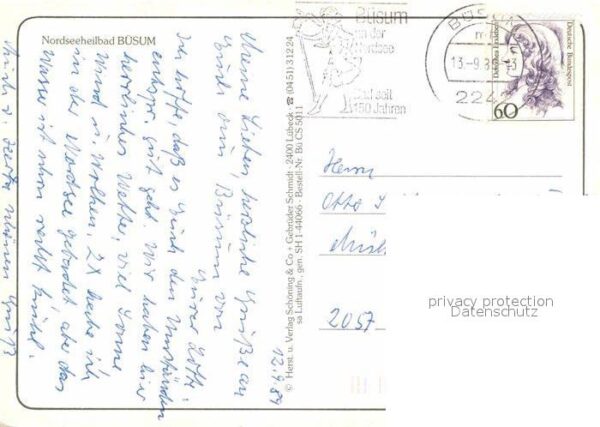 Nordseeheilbad BÜSUM
12.9.89
Meine Lieben, herzliche Grüße an
Euch aus Büsum von
Eurer Lotti
Ich hoffe, daß es Euch den Umständen
entspr. gut geht. Wir haben hier
herrliches Wetter, viel Sonne
Wind u. Wolken, 2x habe ich
in der Nordsee gebadet, aber das
Wasser ist schon recht kühl.
© Herst. u. Verlag Schöning & Co + Gebrüder Schmidt · 2400 Lübeck · ☎ (04 51) 3 12 24
sa Luftaufn., gen. SH 1-44066 · Bestell-Nr. Bü CS 5011
Büsum
an der
Nordsee
Bad seit
150 Jahren
BÜSUM
13.-9.89
224
Deutsche Bundespost
60
Herrn
Otto
2057
privacy protection
Datenschutz